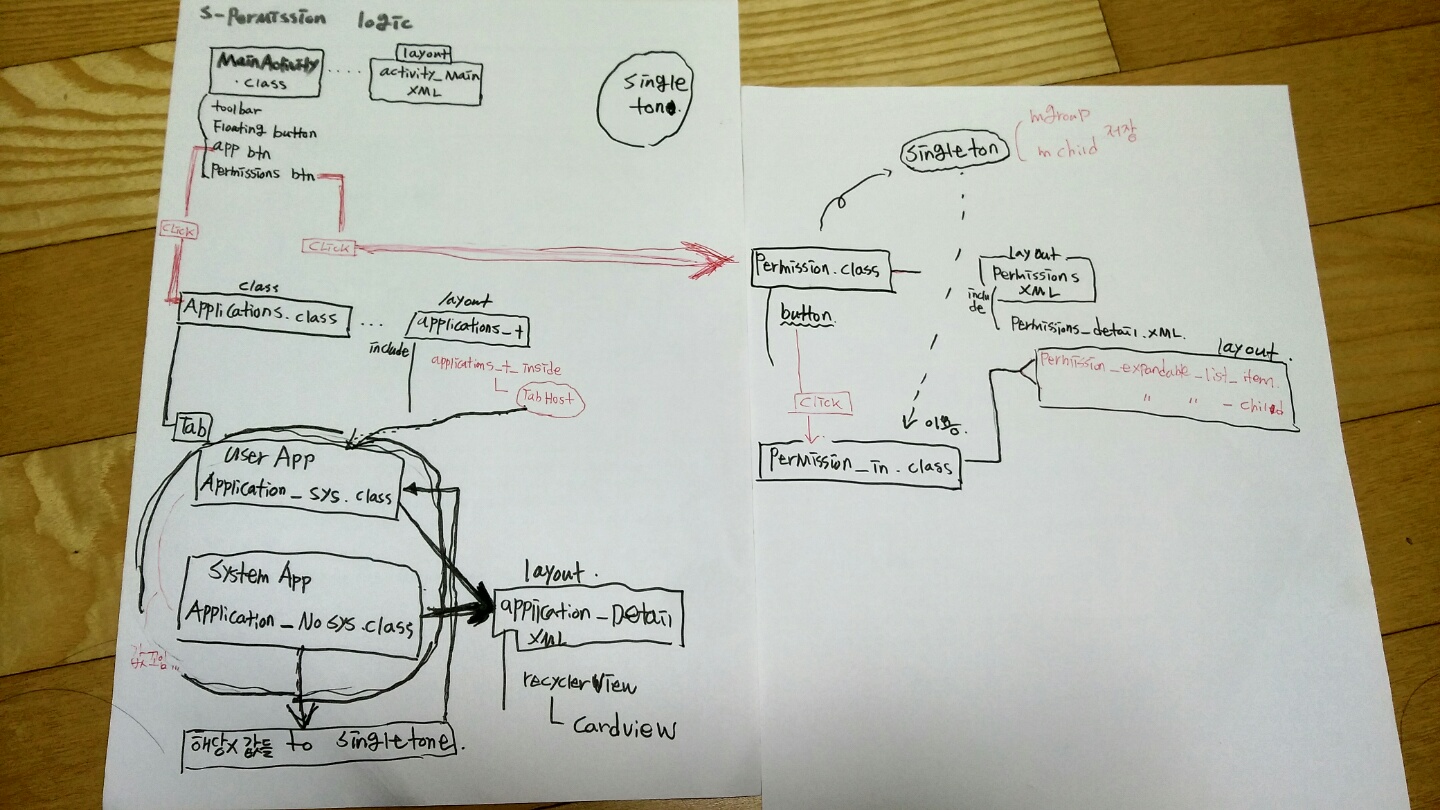 S-Permission logic
MainActivity
.class
layout
activity_Main
XML
single
tone.
toolbar
Floating button
app btn
Permissions btn
click
click
class
Applications.class
layout
applications_t
include
applications_t_inside
TabHost
Tab
User App
Application_sys.class
System App
Application_No sys.class
layout.
application_Detail
XML
recyclerView
cardview
해당x 값들 to singletone.
singleton
mgroup
mchild 저장
Permission.class
layout
Permissions
XML
inclu
de
Permissions_detail.XML.
button
click
layout.
Permission_expandable_list_item.
" " -child
이용.
Permission_in.class